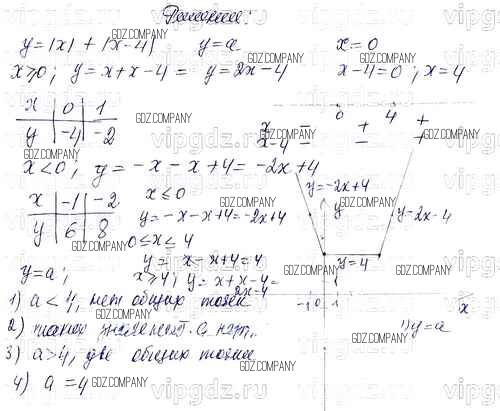 Решение:
y = |x| + |x-4|   y = a   x = 0
x ≥ 0; y = x + x - 4 = y = 2x - 4   x - 4 = 0; x = 4
x | 0 | 1
y | -4 | -2
0   4
x   -   +   +
x-4   -   -   +
x < 0, y = -x - x + 4 = -2x + 4
x | -1 | -2
y | 6 | 8
x ≤ 0
y = -x - x + 4 = -2x + 4
0 ≤ x ≤ 4
y = x - x + 4 = 4
x ≥ 4; y = x + x - 4 =
2x - 4
y = a;
1) a < 4, нет общих точек
2) такого значения a нет
3) a > 4, две общие точки
4) a = 4
y = -2x + 4
y
y = 2x - 4
y = 4
-1 0 1
1
x
1) y = a
GDZ.COMPANY
vipgdz.ru